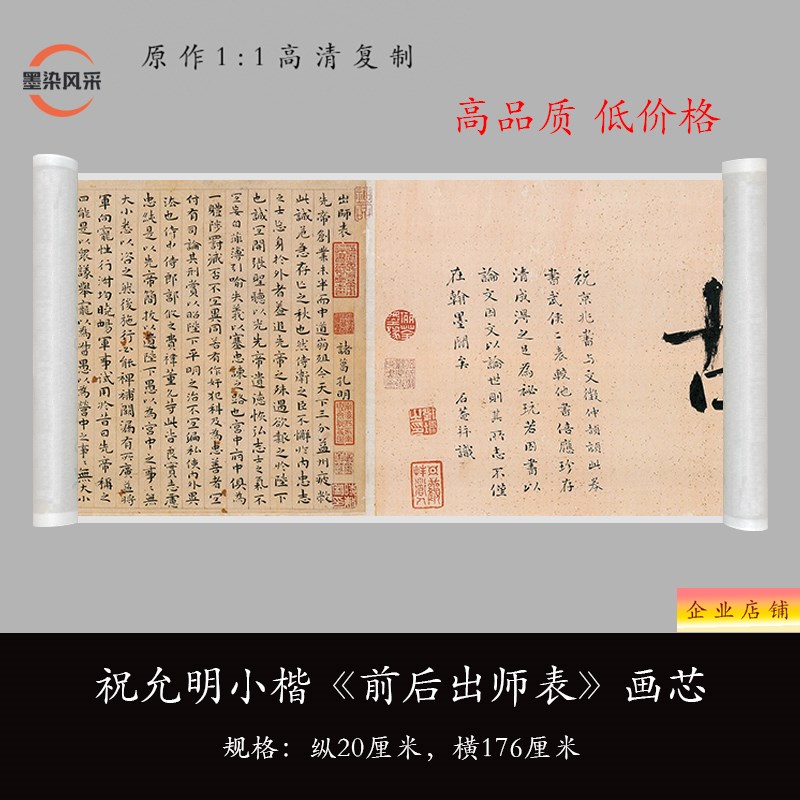 墨染风采
原作1:1高清复制
高品质 低价格
祝京兆書与文徵仲頡頏此卷
書武侯二表較他書倍應珍存
清成得之足為秘玩若因書以
論文因文以論世則其所志不僅
在翰墨間矣 石菴并識
出師表 諸葛孔明
先帝創業未半而中道崩殂今天下三分益州疲敝
此誠危急存亡之秋也然侍衛之臣不懈於内忠志
之士忘身於外者蓋追先帝之殊遇欲報之於陛下
也誠宜開張聖聽以光先帝遺德恢弘志士之氣不
宜妄自菲薄引喻失義以塞忠諫之路也宮中府中俱為
一體陟罰臧否不宜異同若有作奸犯科及為忠善者宜
付有司論其刑賞以昭陛下平明之治不宜偏私使内外異
法也侍中侍郎郭攸之費禕董允等此皆良實志慮
忠純是以先帝簡拔以遺陛下愚以為宮中之事〻無
大小悉以咨之然後施行必能裨補闕漏有所廣益將
軍向寵性行淑均曉暢軍事試用於昔日先帝稱之
曰能是以眾議舉寵以為督愚以為營中之事〻無大小
企业店铺
祝允明小楷《前后出师表》画芯
规格：纵20厘米，横176厘米